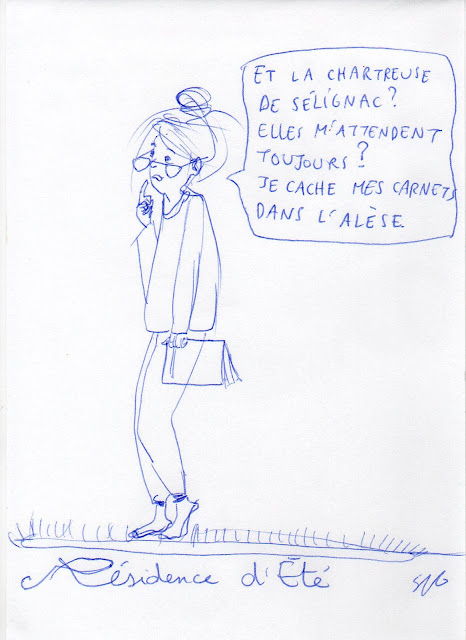 ET LA CHARTREUSE
DE SÉLIGNAC ?
ELLES M'ATTENDENT
TOUJOURS ?
JE CACHE MES CARNETS
DANS L'ALÈSE.
Résidence d'Été